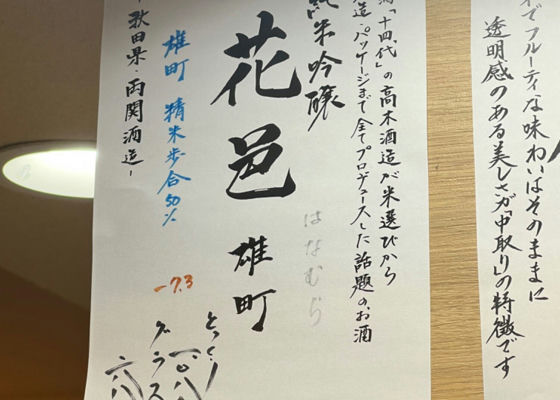 でフルーティな味わいはそのままに
透明感のある美しさが「中取り」の特徴です
「十四代」の高木酒造が米選びから
造・パッケージまで全てプロデュースした話題のお酒
純米吟醸
はなむら
花邑 雄町
雄町 精米歩合50%
-7.3
秋田県・両関酒造-
とっくり
グラス